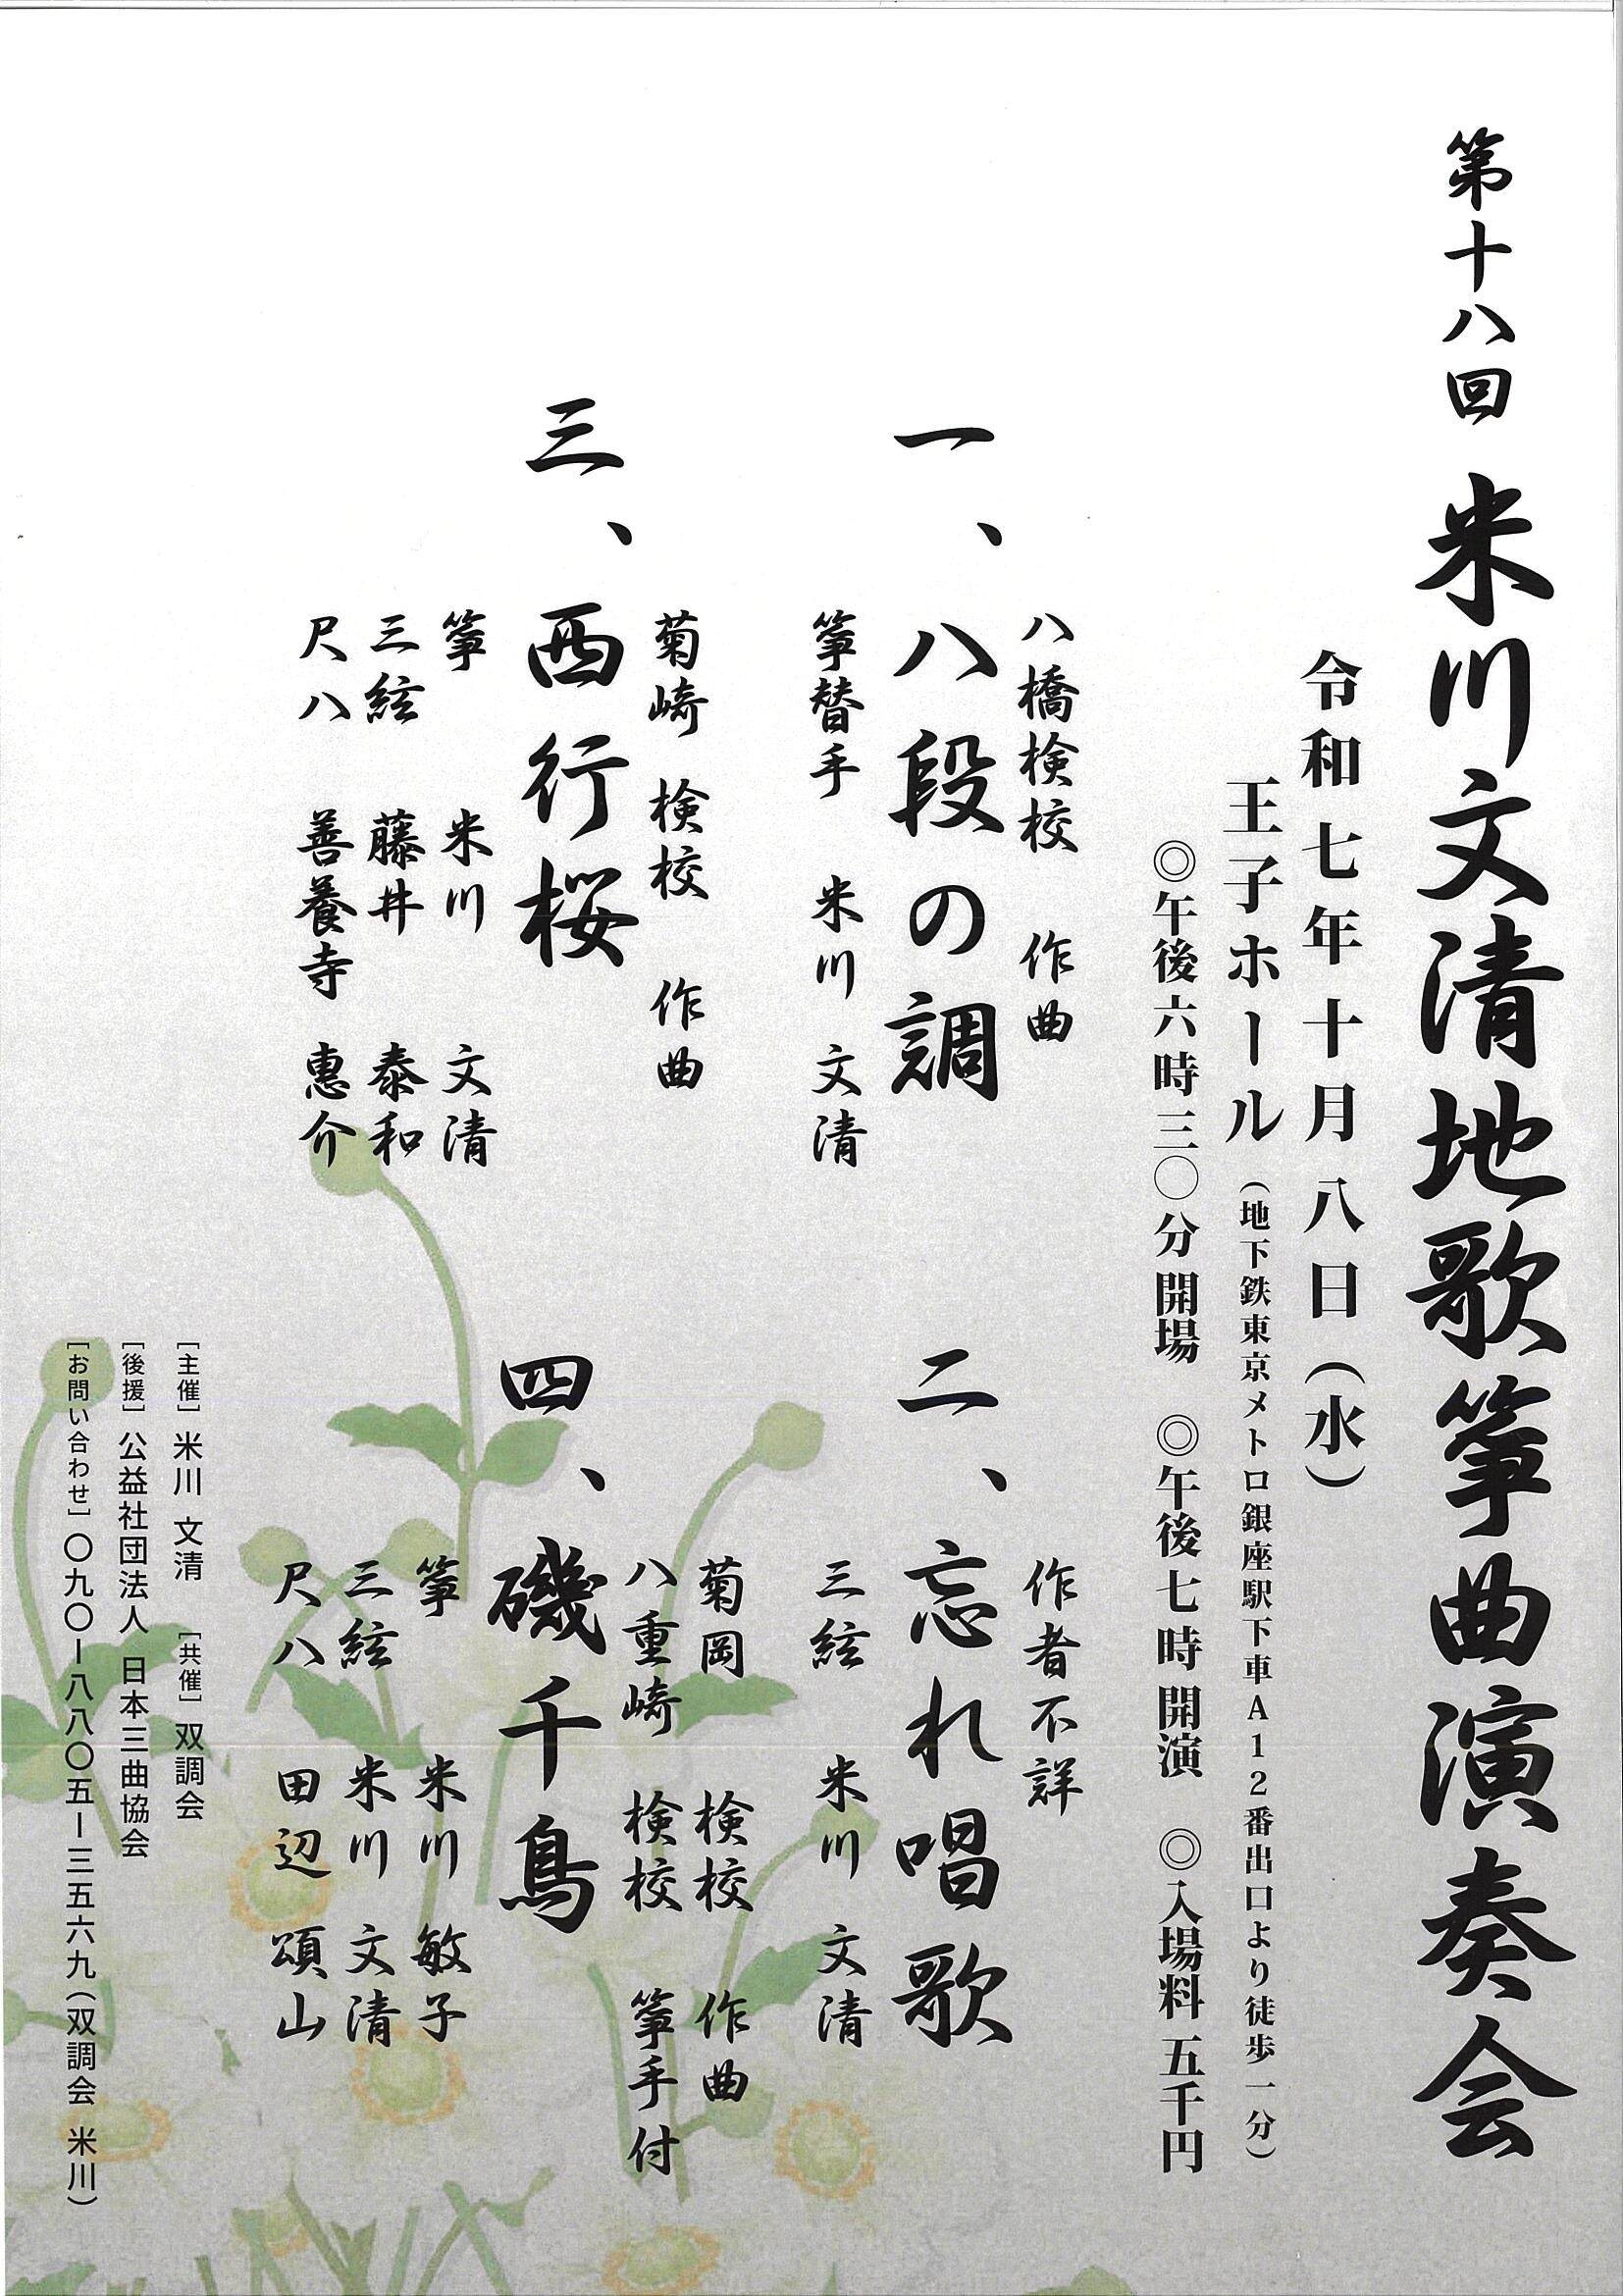 第十八回 米川文清地歌箏曲演奏会
令和七年十月八日（水）
王子ホール（地下鉄東京メトロ銀座駅下車A12番出口より徒歩一分）
◎午後六時三〇分開場 ◎午後七時開演 ◎入場料 五千円
八橋検校 作曲
一、八段の調
箏替手 米川 文清
作者不詳
二、忘れ唱歌
三絃 米川 文清
菊崎 検校 作曲
三、西行桜
箏 米川 文清
三絃 藤井 泰和
尺八 善養寺 惠介
菊岡 検校 作曲
八重崎 検校 箏手付
四、磯千鳥
箏 米川 敏子
三絃 米川 文清
尺八 田辺 頌山
［主催］米川 文清 ［共催］双調会
［後援］公益社団法人 日本三曲協会
［お問い合わせ］〇九〇ー八八〇五ー三五六九（双調会 米川）